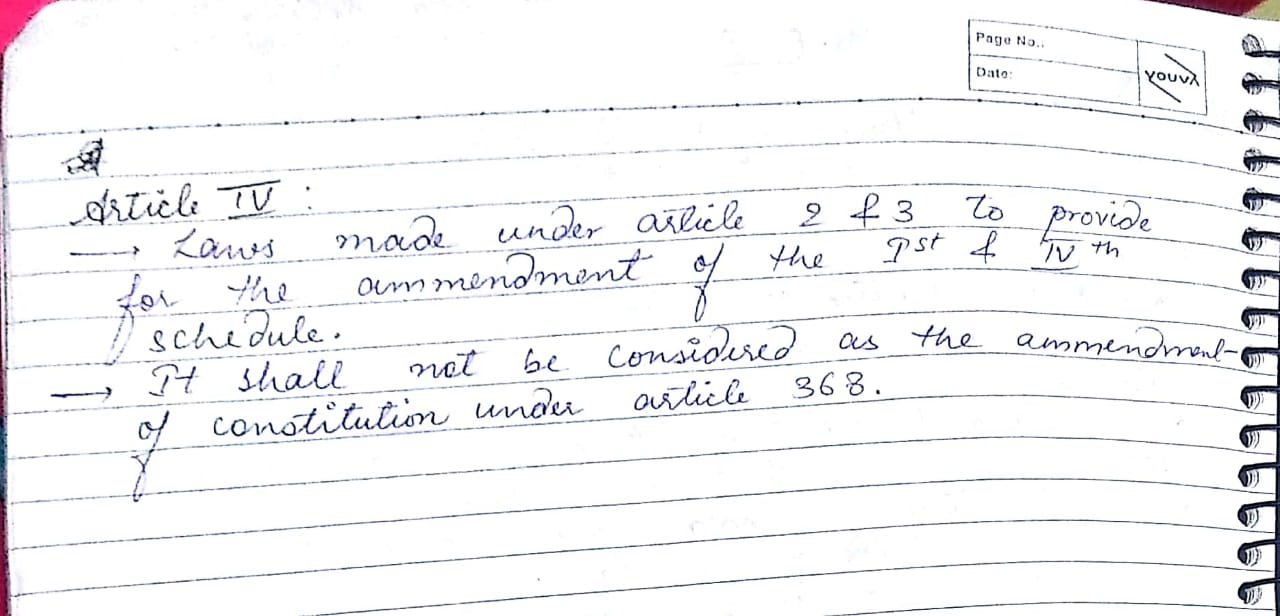 Page No.:
Date:
YOUVA
Article IV :
→ Laws made under article 2 & 3 to provide
for the ammendment of the Ist & IVth
schedule.
→ It shall not be considered as the ammendment
of constitution under article 368.